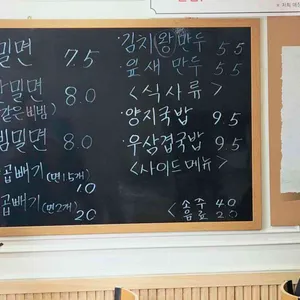 밀면 7.5
밀면 8.0
같은비빔)
빔밀면 8.0
곱빼기 (면1.5개) 1.0
곱빼기 (면2개) 2.0
·김치왕만두 5.5
·잎새만두 5.5
<식사류>
·양지국밥 9.5
·우삼겹국밥 9.5
<사이드메뉴>
<소주 4.0
음료 2.0